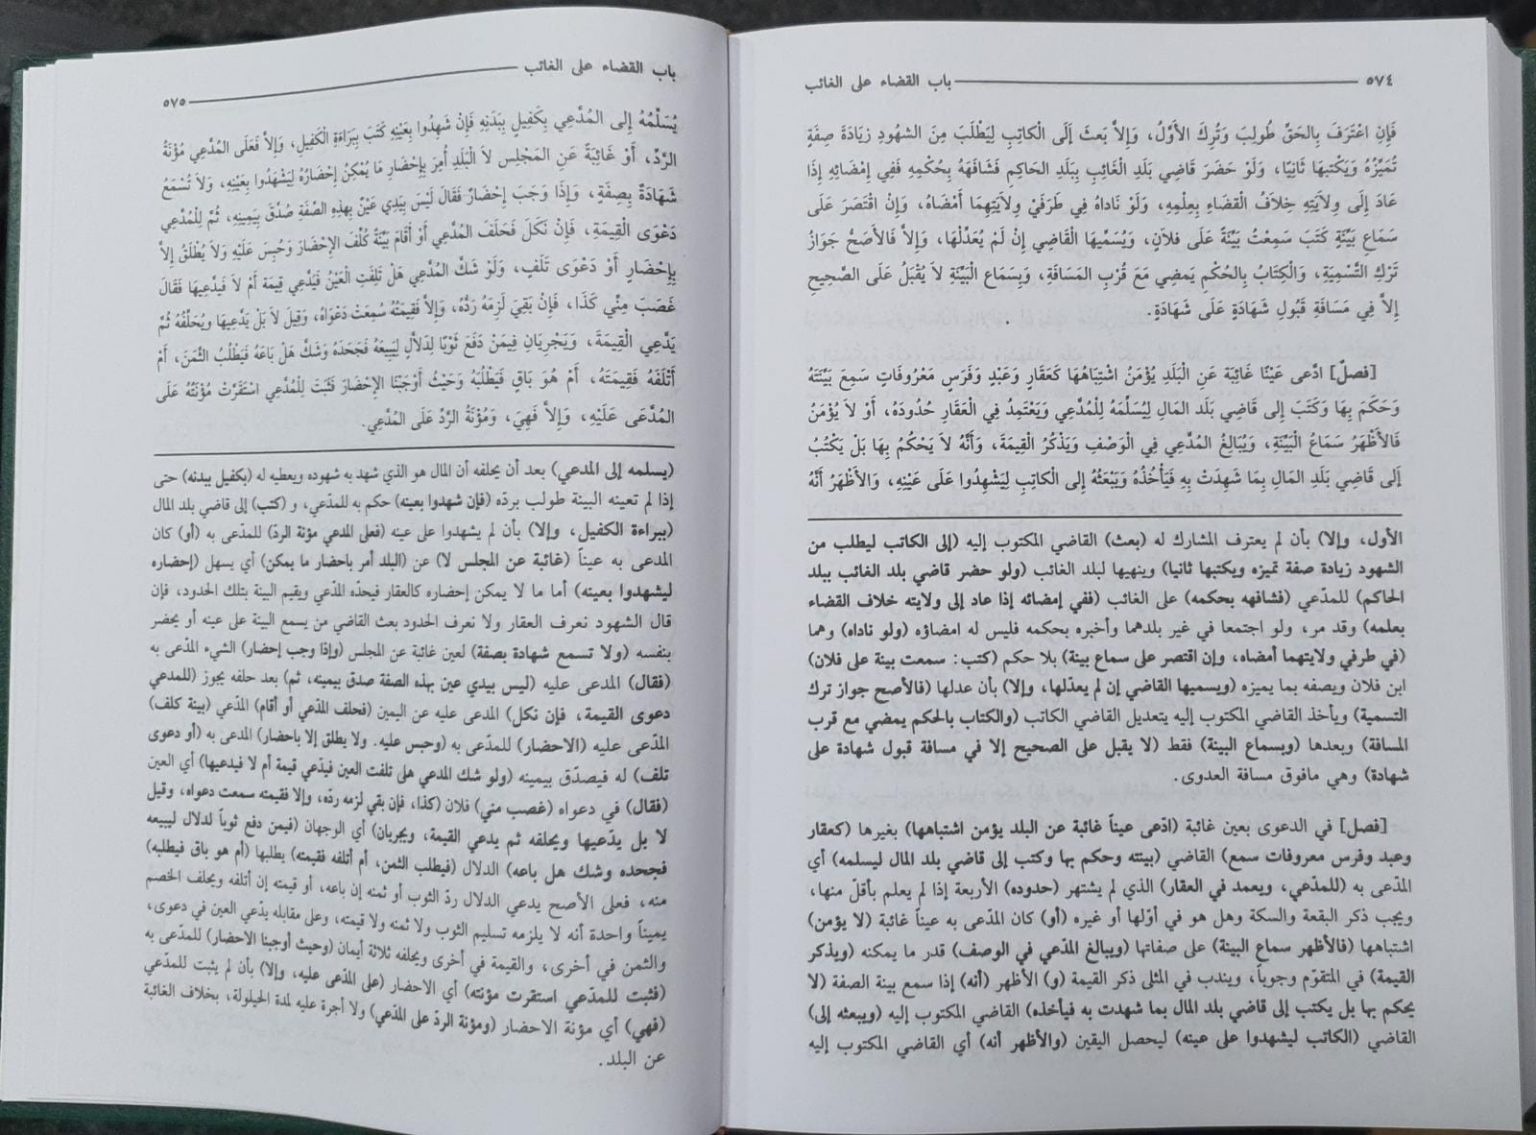 ٥٧٤ باب القضاء على الغائب
فَإِنِ اعْتَرَفَ بِالحَقِّ طُولِبَ وَتُرِكَ الأَوَّلُ، وَإِلاَّ بَعثَ إِلَى الْكَاتِبِ لِيَطْلُبَ مِنَ الشهُودِ زِيَادَةَ صِفَةٍ
تُمَيِّزُهُ وَيَكْتبهَا ثَانِيًا، وَلَوْ حَضَرَ قَاضِي بَلَدِ الْغَائِبِ بِبَلَدِ الحَاكِمِ فَشَافَهَهُ بِحُكْمِهِ فَفِي إِمْضَائِهِ إِذَا
عَادَ إِلَى وِلاَيَتِهِ خِلاَفُ الْقَضَاءِ بِعِلْمِهِ، وَلَوْ نَادَاهُ فِي طَرَفَيْ وِلاَيَتِهِمَا أَمْضَاهُ، وَإِنْ اقْتَصَرَ عَلَى
سَمَاعِ بَيِّنَةٍ كَتَبَ سَمِعْتُ بَيِّنَةً عَلَى فلاَنٍ، وَيُسَمِّيهَا الْقَاضِي إِنْ لَمْ يُعَدِّلْهَا، وَإِلاَّ فَالأَصَحُّ جَوَازُ
تَرْكِ التَّسْمِيَةِ، وَالْكِتَابُ بِالحُكْمِ يَمضِي مَعَ قُرْبِ المَسَافَةِ، وَبِسَمَاعِ الْبَيِّنَةِ لاَ يُقْبَلُ عَلَى الصَّحِيحِ
إِلاَّ فِي مَسَافَةِ قَبُولِ شَهَادَةٍ عَلَى شَهَادَةٍ.
[فصلٌ] ادْعى عَيْنًا غَائِبَةً عَنِ الْبَلَدِ يُؤْمَنُ اشْتِبَاهُهَا كَعَقَارٍ وَعَبْدٍ وَفَرَسٍ مَعْرُوفَاتٍ سَمِعَ بَيِّنَتَهُ
وَحَكَمَ بِهَا وَكَتَبَ إِلى قَاضِي بَلَد المَالِ لِيُسَلِّمَهُ لِلْمُدَّعِي وَيَعْتَمِدُ فِي الْعَقَارِ حُدُودَهُ، أَوْ لاَ يُؤْمَنُ
فَالأَظْهَرُ سَمَاعُ الْبَيِّنَةِ، وَيُبَالِغُ المُدَّعِي فِي الْوَصْفِ وَيَذْكُرُ الْقِيمَةَ، وَأَنَّهُ لاَ يَحْكُمُ بِهَا بَلْ يَكْتُبُ
إِلَى قَاضِي بَلَدِ المَالِ بِمَا شَهِدَتْ بِهِ فَيَأْخُذُهُ وَيَبْعَثُهُ إِلى الْكَاتِبِ لِيَشْهِدُوا عَلَى عَيْنِهِ، وَالأَظْهَرُ أَنَّهُ
الأول، وإلا) بأن لم يعترف المشارك له (بعث) القاضي المكتوب إليه (إلى الكاتب ليطلب من
الشهود زيادة صفة تميزه ويكتبها ثانيا) وينهيها لبلد الغائب (ولو حضر قاضي بلد الغائب ببلد
الحاكم) للمدّعي (فشافهه بحكمه) على الغائب (ففي إمضائه إذا عاد إلى ولايته خلاف القضاء
بعلمه) وقد مر، ولو اجتمعا في غير بلدهما وأخبره بحكمه فليس له امضاؤه (ولو ناداه) وهما
(في طرفي ولايتهما أمضاه، وإن اقتصر على سماع بينة) بلا حكم (كتب: سمعت بينة على فلان)
ابن فلان ويصفه بما يميزه (ويسميها القاضي إن لم يعدّلها، وإلا) بأن عدلها (فالأصح جواز ترك
التسمية) ويأخذ القاضي المكتوب إليه بتعديل القاضي الكاتب (والكتاب بالحكم يمضي مع قرب
المسافة) وبعدها (وبسماع البينة) فقط (لا يقبل على الصحيح إلا في مسافة قبول شهادة على
شهادة) وهي مافوق مسافة العدوى.
[فصل] في الدعوى بعين غائبة (ادّعى عيناً غائبة عن البلد يؤمن اشتباهها) بغيرها (كعقار
وعبد وفرس معروفات سمع) القاضي (بينته وحكم بها وكتب إلى قاضي بلد المال ليسلمه) أي
المدّعى به (للمدّعي، ويعمد في العقار) الذي لم يشتهر (حدوده) الأربعة إذا لم يعلم بأقلّ منها،
ويجب ذكر البقعة والسكة وهل هو في أوّلها أو غيره (أو) كان المدّعى به عيناً غائبة (لا يؤمن)
اشتباهها (فالأظهر سماع البينة) على صفاتها (ويبالغ المدّعي في الوصف) قدر ما يمكنه (ويذكر
القيمة) في المتقوّم وجوباً، ويندب في المثلى ذكر القيمة (و) الأظهر (أنه) إذا سمع بينة الصفة (لا
يحكم بها بل يكتب إلى قاضي بلد المال بما شهدت به فيأخذه) القاضي المكتوب إليه (ويبعثه إلى)
القاضي (الكاتب ليشهدوا على عينه) ليحصل اليقين (والأظهر أنه) أي القاضي المكتوب إليه
باب القضاء على الغائب ٥٧٥
يُسَلِّمُهُ إِلى المُدَّعِي بِكَفِيلٍ بِبَدَنِهِ فَإِنْ شَهِدُوا بِعَيْنِهِ كَتَبَ بِبَرَاءَةِ الْكَفِيلِ، وَإِلاَّ فَعَلَى المُدَّعِي مُؤْنَةُ
الرَّدِّ، أَوْ غَائِبَةً عَنِ المَجْلِس لاَ الْبَلَدِ أُمِرَ بِإِحْضَارِ مَا يُمْكِنُ إِحْضَارُهُ لِيَشْهَدُوا بِعَيْنِهِ، وَلاَ تُسْمَعُ
شَهَادَةٌ بِصِفَةٍ، وَإِذَا وَجَبَ إِحْضَارٌ فَقَالَ لَيْسَ بِيَدِي عَيْنٌ بِهذِهِ الصِّفَةِ صُدِّقَ بِيَمِينِهِ، ثُمَّ لِلْمُدَّعِي
دَعْوَى الْقِيمَةِ، فَإِنْ نَكَلَ فَحَلَفَ المُدَّعِي أَوْ أَقَامَ بَيِّنَةً كُلِّفَ الإِحْضَارَ وَحُبِسَ عَلَيْهِ وَلاَ يُطْلَقُ إِلاَّ
بِإِحْضَارٍ أَوْ دَعْوَى تَلَفٍ، وَلَوْ شَكَّ المُدَّعِي هَلْ تَلِفَتِ الْعَيْنُ فَيَدَّعِي قِيمَة أَمْ لاَ فَيَدَّعِيهَا فَقَالَ
غَصَبَ مِنِّي كَذَا، فَإِنْ بَقِيَ لَزِمَهُ رَدُّهُ، وَإِلاَّ فَقِيمَتُهُ سُمِعَتْ دَعْوَاهُ، وَقِيلَ لاَ بَلْ يَدَّعِيهَا وَيُحَلِّفُهُ ثُمَّ
يَدَّعِي الْقِيمَةَ، وَيَجْرِيَانِ فِيمَنْ دَفَعَ ثَوْبًا لِدَلاَّلٍ لِيَبِيعَهُ فَجَحَدَهُ وَشَكَّ هَلْ بَاعَهُ فَيَطْلُبُ الثَّمَنَ، أَمْ
أَتْلَفَهُ فَقِيمَتَهُ، أَمْ هُوَ بَاقٍ فَيَطْلُبَهُ وَحَيْثُ أَوْجَبْنَا الإِحْضَارَ فَثَبَتَ لِلْمُدَّعِي اسْتَقَرَّتْ مُؤْنَتُهُ عَلَى
المُدَّعَى عَلَيْهِ، وَإِلاَّ فَهِيَ، وَمُؤْنَةُ الرَّدِّ عَلَى المُدَّعِي.
(يسلمه إلى المدعي) بعد أن يحلفه أن المال هو الذي شهد به شهوده ويعطيه له (بكفيل ببدنه) حتى
إذا لم تعينه البينة طولب بردّه (فإن شهدوا بعينه) حكم به للمدّعي، و (كتب) إلى قاضي بلد المال
(ببراءة الكفيل، وإلا) بأن لم يشهدوا على عينه (فعلى المدعي مؤنة الردّ) للمدّعى به (أو) كان
المدعى به عيناً (غائبة عن المجلس لا) عن (البلد أمر باحضار ما يمكن) أي يسهل (إحضاره
ليشهدوا بعينه) أما ما لا يمكن إحضاره كالعقار فيحدّه المدّعي ويقيم البينة بتلك الحدود، فإن
قال الشهود نعرف العقار ولا نعرف الحدود بعث القاضي من يسمع البينة على عينه أو يحضر
بنفسه (ولا تسمع شهادة بصفة) لعين غائبة عن المجلس (وإذا وجب إحضار) الشيء المدّعى به
(فقال) المدعى عليه (ليس بيدي عين بهذه الصفة صدق بيمينه، ثم) بعد حلفه يجوز (للمدعي
دعوى القيمة، فإن نكل) المدعى عليه عن اليمين (فحلف المدّعي أو أقام) المدّعي (بينة كلف)
المدّعى عليه (الاحضار) للمدّعى به (وحبس عليه. ولا يطلق إلا باحضار) المدعى به (أو دعوى
تلف) له فيصدّق بيمينه (ولو شك المدعي هل تلفت العين فيدّعي قيمة أم لا فيدعيها) أي العين
(فقال) في دعواه (غصب مني) فلان (كذا، فإن بقي لزمه ردّه، وإلا فقيمته سمعت دعواه، وقيل
لا بل يدّعيها ويحلفه ثم يدعي القيمة، ويجريان) أي الوجهان (فيمن دفع ثوباً لدلال ليبيعه
فجحده وشك هل باعه) الدلال (فيطلب الثمن، أم أتلفه فقيمته) يطلبها (أم هو باق فيطلبه)
منه، فعلى الأصح يدعي الدلال ردّ الثوب أو ثمنه إن باعه، أو قيمته إن أتلفه ويحلف الخصم
يميناً واحدة أنه لا يلزمه تسليم الثوب ولا ثمنه ولا قيمته، وعلى مقابله يدّعي العين في دعوى،
والثمن في أخرى، والقيمة في أخرى ويحلفه ثلاثة أيمان (وحيث أوجبنا الاحضار) للمدّعى به
(فثبت للمدّعي استقرت مؤنته) أي الاحضار (على المدّعى عليه، وإلا) بأن لم يثبت للمدّعي
(فهي) أي مؤنة الاحضار (ومؤنة الردّ على المدّعي) ولا أجرة عليه لمدة الحيلولة، بخلاف الغائبة
عن البلد.